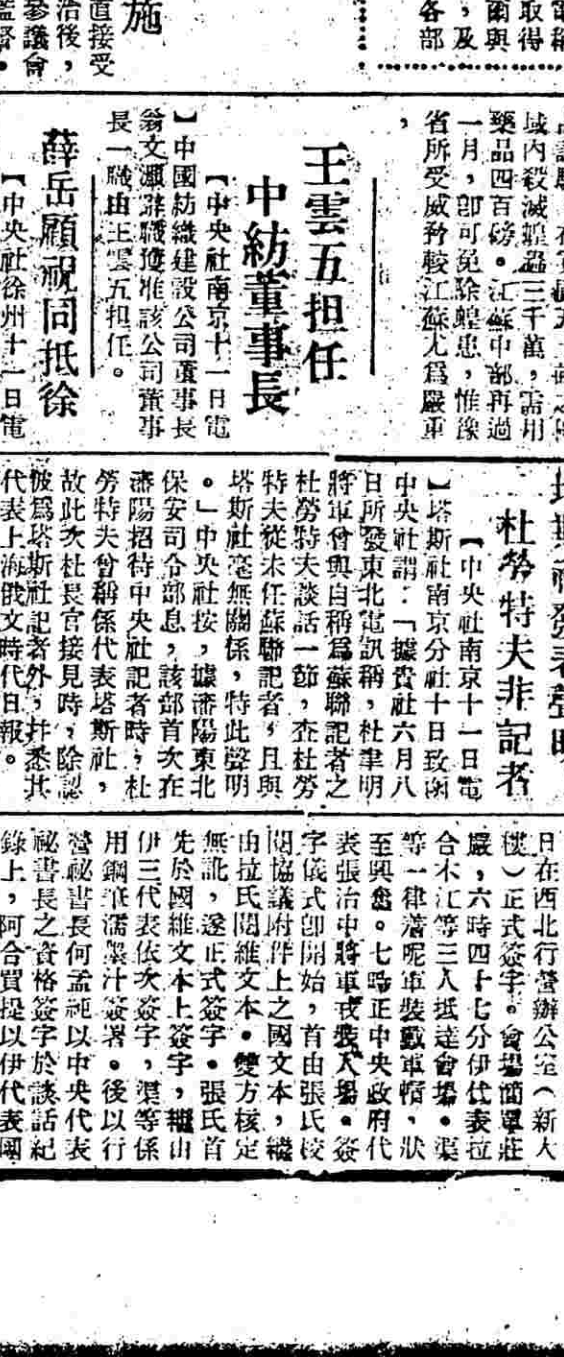 取得
爾與
，及
各部
施
直接受
治後，
參議會
監督。
域內殺滅蝗蟲三千萬，需用
藥品四百磅。江蘇中部再過
一月，卽可免除蝗患，惟豫
省所受威脅較江蘇尤爲嚴重
，
王雲五担任
中紡董事長
【中央社南京十一日電
】中國紡織建設公司董事長
翁文灝辭職獲准該公司董事
長一職由王雲五担任。
薛岳顧祝同抵徐
【中央社徐州十一日電
塔斯社發表聲明
杜勞特夫非記者
【中央社南京十一日電
】塔斯社南京分社十日致函
中央社謂：「據貴社六月八
日所發東北電訊稱，杜聿明
將軍曾與自稱爲蘇聯記者之
杜勞特夫談話一節，查杜勞
特夫從未任蘇聯記者，且與
塔斯社毫無關係，特此聲明
。」中央社按，據瀋陽東北
保安司令部息，該部首次在
瀋陽招待中央社記者時，杜
勞特夫曾稱係代表塔斯社，
故此次杜長官接見時，除認
彼爲塔斯社記者外，幷悉其
代表上海俄文時代日報。
日在西北行營辦公室（新大
樓）正式簽字。會場簡單莊
嚴，六時四十七分伊代表拉
合木江等三人抵達會場。渠
等一律著呢軍裝戴軍帽，狀
至興奮。七時正中央政府代
表張治中將軍戎裝入場。簽
字儀式卽開始，首由張氏校
閱協議附件上之國文本，繼
由拉氏閱維文本。雙方核定
無訛，遂正式簽字。張氏首
先於國維文本上簽字，繼由
伊三代表依次簽字，渠等係
用鋼筆濡墨汁簽署。後以行
營祕書長何孟純以中央代表
祕書長之資格簽字於談話紀
錄上，阿合買提以伊代表團